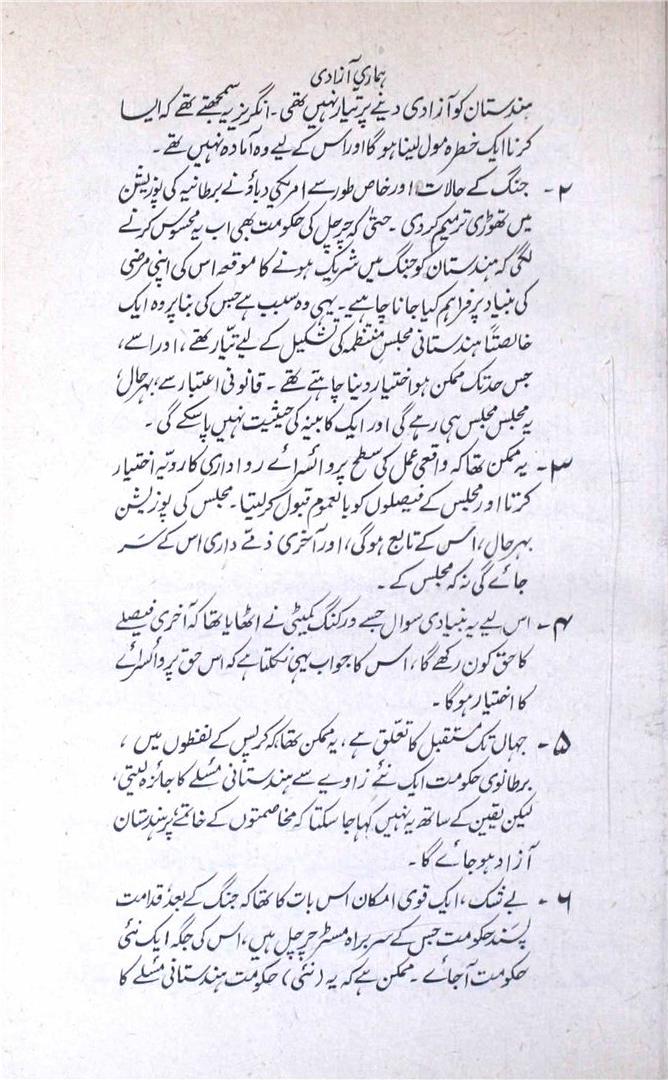 ہماری آزادی
ہندستان کو آزادی دینے پر تیار نہیں تھی۔ انگریز یہ سمجھتے تھے کہ ایسا
کرنا ایک خطرہ مول لینا ہوگا اور اس کے لیے وہ آمادہ نہیں تھے۔
۲- جنگ کے حالات اور خاص طور سے امریکی دباؤ نے برطانیہ کی پوزیشن
میں تھوڑی ترمیم کر دی۔ حتٰی کہ چرچل کی حکومت بھی اب یہ محسوس کرنے
لگی کہ ہندستان کو جنگ میں شریک ہونے کا موقعہ اس کی اپنی مرضی
کی بنیاد پر فراہم کیا جانا چاہیے۔ یہی وہ سبب ہے جس کی بنا پر وہ ایک
خالصتاً ہندستانی مجلس منتظمہ کی تشکیل کے لیے تیّار تھے، اور اسے،
جس حد تک ممکن ہو اختیار دینا چاہتے تھے۔ قانونی اعتبار سے، بہر حال،
یہ مجلس مجلس ہی رہے گی اور ایک کابینہ کی حیثیت نہیں پا سکے گی۔
۳- یہ ممکن تھا کہ واقعی عمل کی سطح پر وائسرائے رواداری کا رویّہ اختیار
کرتا اور مجلس کے فیصلوں کو بالعموم قبول کر لیتا۔ مجلس کی پوزیشن
بہر حال، اس کے تابع ہوگی، اور آخری ذمّے داری اس کے سَر
جائے گی نہ کہ مجلس کے۔
۴- اس لیے یہ بنیادی سوال جسے ورکنگ کمیٹی نے اٹھایا تھا کہ آخری فیصلے
کا حق کون رکھے گا، اس کا جواب یہی نکلتا ہے کہ اس حق پر وائسرائے
کا اختیار ہوگا۔
۵- جہاں تک مستقبل کا تعلّق ہے، یہ ممکن تھا، کہ کرپس کے لفظوں میں،
برطانوی حکومت ایک نئے زاویے سے ہندستانی مسئلے کا جائزہ لیتی،
لیکن یقین کے ساتھ یہ نہیں کہا جا سکتا کہ مخاصمتوں کے خاتمے پر ہندستان
آزاد ہو جائے گا۔
۶- بے شک، ایک قوی امکان اس بات کا تھا کہ جنگ کے بعد قدامت
پسند حکومت جس کے سربراہ مسٹر چرچل ہیں، اس کی جگہ ایک نئی
حکومت آجائے۔ ممکن ہے کہ یہ (نئی) حکومت ہندستانی مسئلے کا